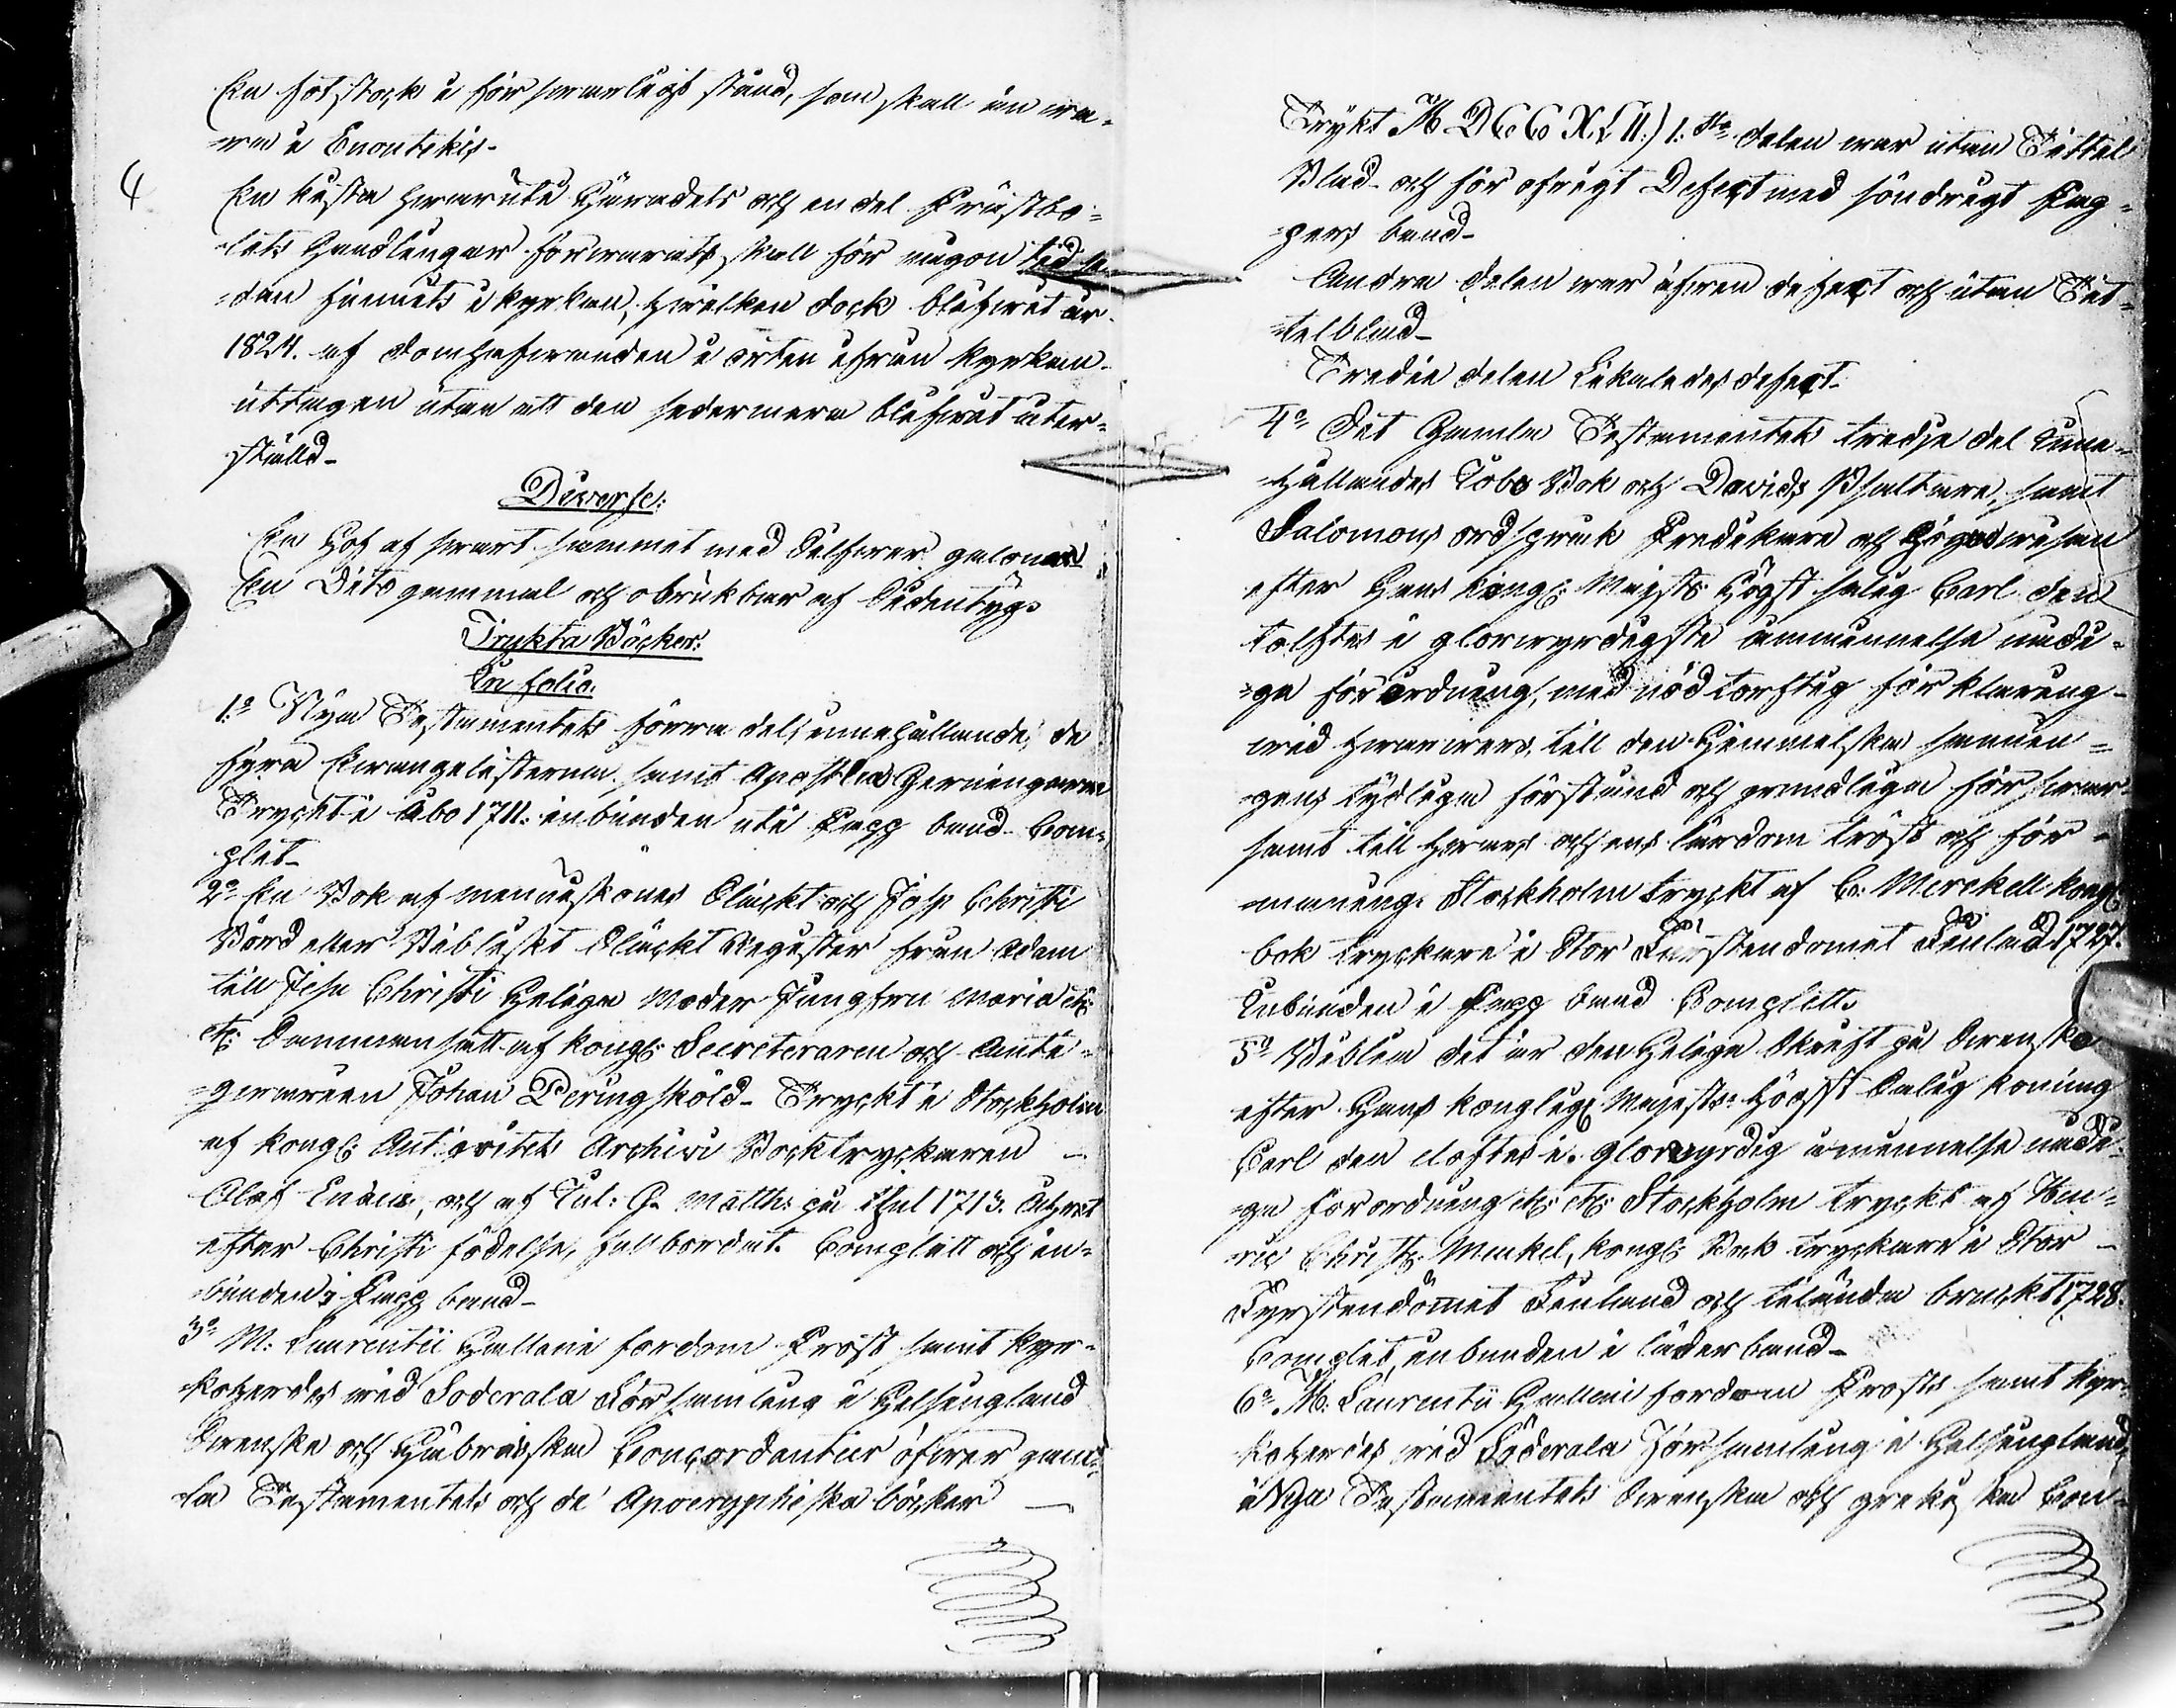 En fotstock i försvarligt stånd, som skall än wa-
-ra i Enontekis-
4
En kista hwaruti Häradets och en del Prästbo-
-lets Handlingar förwarats, skall för någon tid se-
-dan funnits i kyrkan, hwilken dock blifwit år
1824. af Domhafwanden i orten ifrån kyrkan
uttagen utan att den sedermera blifwit åter-
ställd-
Diverse:
En Håf af swart sammet med Silfwer galoner
En Dito gammal och obrukbar af Sidentyg.
Trykta Böcker:
In folio.
1:o Nya Testamentets förra del, innehållande, de
fyra Evangelisterna, samt Apostla Gerningarna
Tryckt i Åbo 1711. inbunden uti Papp band- Com-
plet-
2:o En Bok af menniskones Släckt och Jesu Christi
Börd eller Bibliskt Släckt Register från Adam
till Jesu Christi Heliga Moder Jungfru Maria etc
etc: Sammansatt af kongl: Secreteraren och Anti-
-qvarien Johan Peringsköld- Tryckt i Stockholm
af kongl: Antiqvitets Archivi Bocktryckaren -
Olof Enæus, och af Jul: G. Matth: på Åhr 1713. Åhret
efter Christi födelse, fullbordat. Complett och in-
-bunden i Papp band-
3:o M: Laurentii Halleni fordom Prost samt kyr-
-koherdes wid Söderala Församling i Helsingland
Swenska och Hebräiska Concordantier öfwer gam-
-la Testamentets och de Apocryphiska böcker -
Trykt MDCCXLII:) 1:sta delen war utan Tittel
Blad- och för öfrigt Defect med söndrigt Pap-
-pers band-
Andra delen war äfwen defect och utan Tit-
-telblad-
Tredie delen Likaledes defect-
4:o Det Gamla Testamentets tredje del Inne-
-hållandes Jobs Bok och Davids Psaltare, samt
Salomons ordspråk Predikare och Höga wisan
efter Hans kongl: Majsts Högst salig Carl den
tolftes i glorwyrdigste åminnelse nådi-
-ga förordning, med nödtorftig förklaring-
wid hwar vers, till den Himmelska sannin-
-gens tydliga förstånd och grundliga förswar
samt till hwars och ens lärdom tröst och för-
-maning. Stockholm tryckt af C: Merckell kongl:
bok tryckare i Stor Furstendömet Finland 1727.
Inbunden i Papp band Complett.
5:o Biblia det är den Heliga Skrift på Swenska
efter Hans kongligl Majestets Högst Salig Konung
Carl den elftes i. glorwyrdig åminnelse nådi-
-ga förordning etc: etc: Stockholm tryckt af Hen-
-ric Christ: Merckel, kongl: Bok tryckare i Stor-
Fyrstendömet Finland och Lilånda bruckt 1728.
Complet, inbunden i läder band-
6:o M: Laurentii Halleni fordom Prosts samt kyr-
koherdes wid Söderala församling i Helsingland
i Nya Testamentets Swenska och grekiska Con-